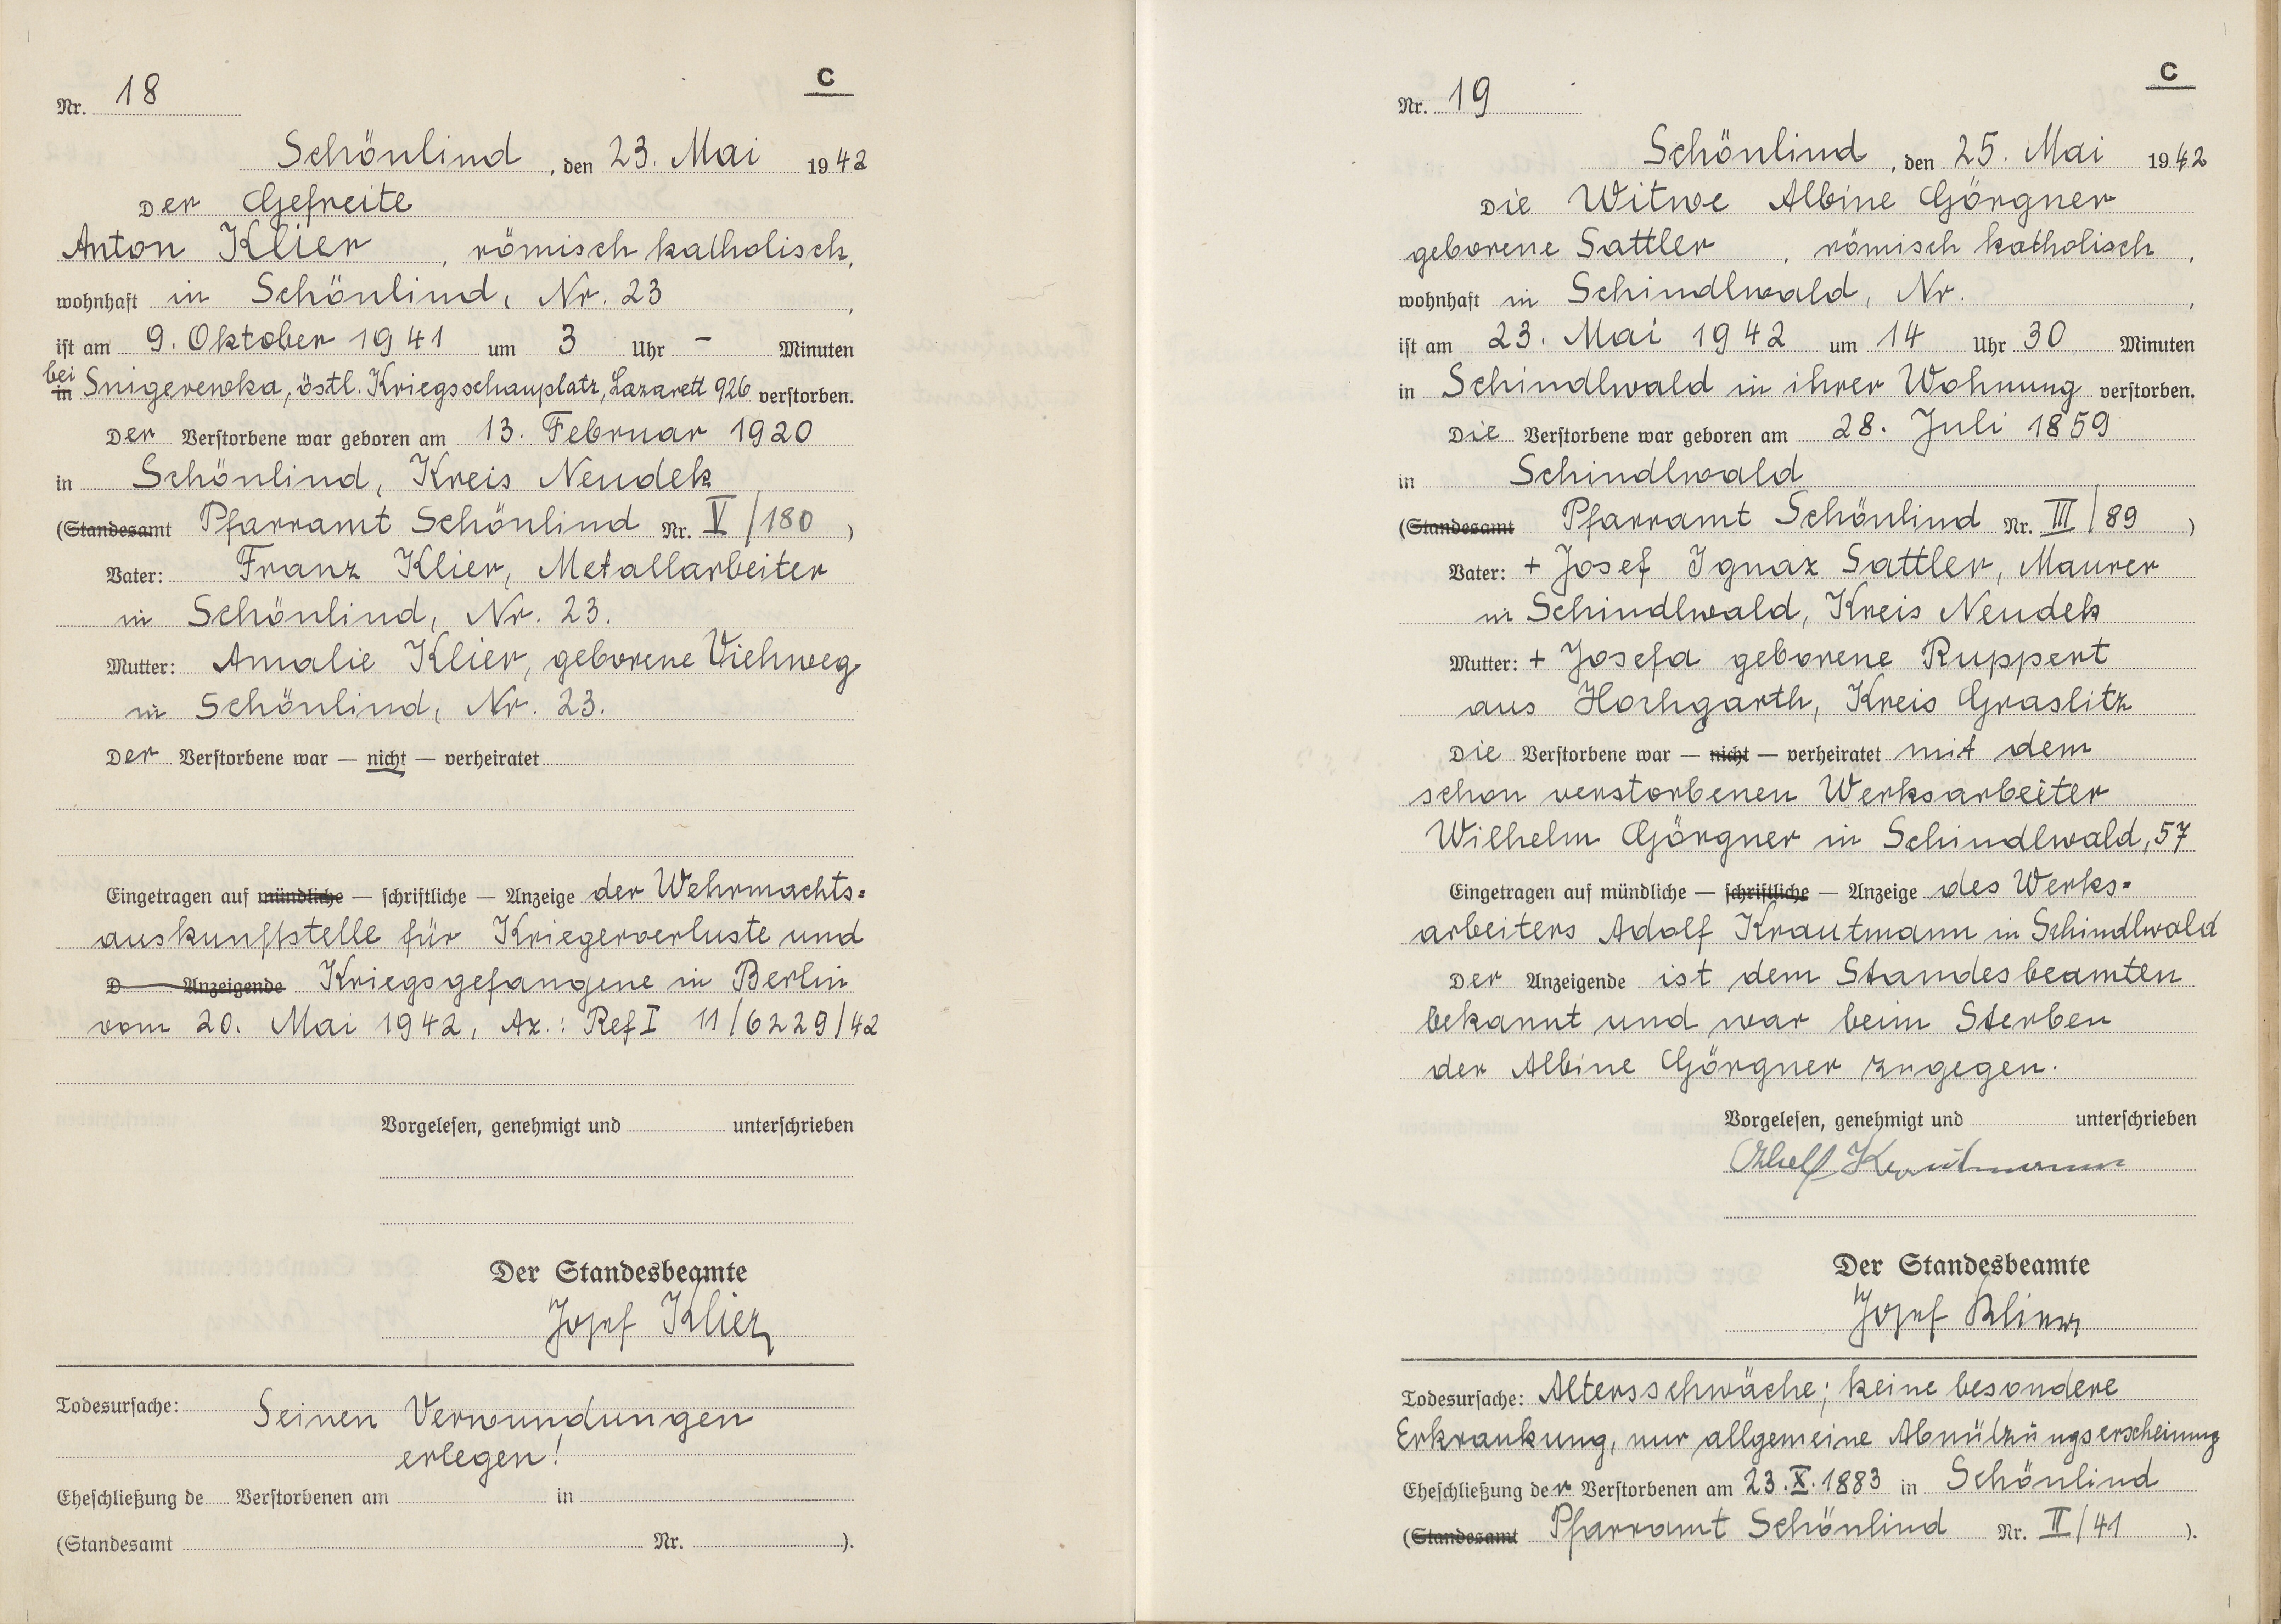 C
Nr. 18
Schönlind, den 23. Mai 1942
Der Gefreite
Anton Klier, römisch katholisch,
wohnhaft in Schönlind, Nr. 23,
ist am 9. Oktober 1941 um 3 Uhr - Minuten
bei
in Snigerewka, östl. Kriegsschauplatz, Lazarett 926 verstorben.
Der Verstorbene war geboren am 13. Februar 1920
in Schönlind, Kreis Neudek
(Standesamt Pfarramt Schönlind Nr. V/180)
Vater: Franz Klier, Metallarbeiter
in Schönlind, Nr. 23.
Mutter: Amalie Klier, geborene Viehweg
in Schönlind, Nr. 23.
Der Verstorbene war — nicht — verheiratet
Eingetragen auf mündliche — schriftliche — Anzeige der Wehrmachts=
auskunftstelle für Kriegerverluste und
D Anzeigende Kriegsgefangene in Berlin
vom 20. Mai 1942, Az.: Ref I 11/6229/42
Vorgelesen, genehmigt und unterschrieben
Der Standesbeamte
Josef Klier
Todesursache: Seinen Verwundungen
erlegen!
Eheschließung de Verstorbenen am in
(Standesamt Nr. ).
C
Nr. 19
Schönlind, den 25. Mai 1942
Die Witwe Albine Görgner
geborene Sattler, römisch katholisch,
wohnhaft in Schindlwald, Nr. ,
ist am 23. Mai 1942 um 14 Uhr 30 Minuten
in Schindlwald in ihrer Wohnung verstorben.
Die Verstorbene war geboren am 28. Juli 1859
in Schindlwald
(Standesamt Pfarramt Schönlind Nr. III/89)
Vater: + Josef Ignaz Sattler, Maurer
in Schindlwald, Kreis Neudek
Mutter: + Josefa geborene Ruppert
aus Hochgarth, Kreis Graslitz
Die Verstorbene war — nicht — verheiratet mit dem
schon verstorbenen Werksarbeiter
Wilhelm Görgner in Schindlwald, 57
Eingetragen auf mündliche — schriftliche — Anzeige des Werks=
arbeiters Adolf Krautmann in Schindlwald
Der Anzeigende ist dem Standesbeamten
bekannt und war beim Sterben
der Albine Görgner zugegen.
Vorgelesen, genehmigt und unterschrieben
Adolf Krautmann
Der Standesbeamte
Josef Klier
Todesursache: Altersschwäche; keine besondere
Erkrankung, nur allgemeine Abnützungserscheinung
Eheschließung der Verstorbenen am 23.X.1883 in Schönlind
(Standesamt Pfarramt Schönlind Nr. II/41 ).